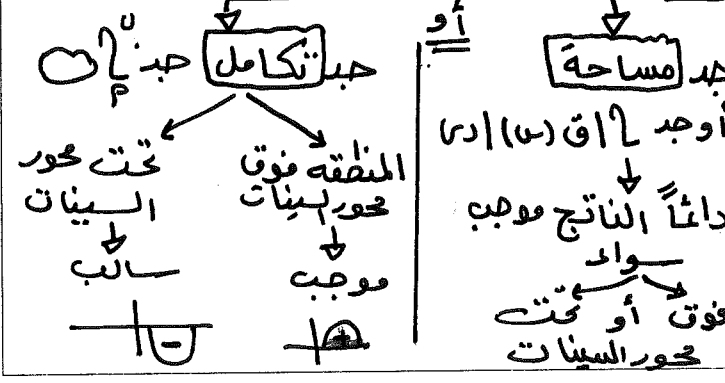 جد مساحة
أوجد ∫|ق(س)|دس
دائماً الناتج موجب
سواء
فوق أو تحت
محور السينات
أو
جد تكامل جد ∫
ب
م
المنطقه فوق
محور السينات
موجب
+
تحت محور
السينات
سالب
-